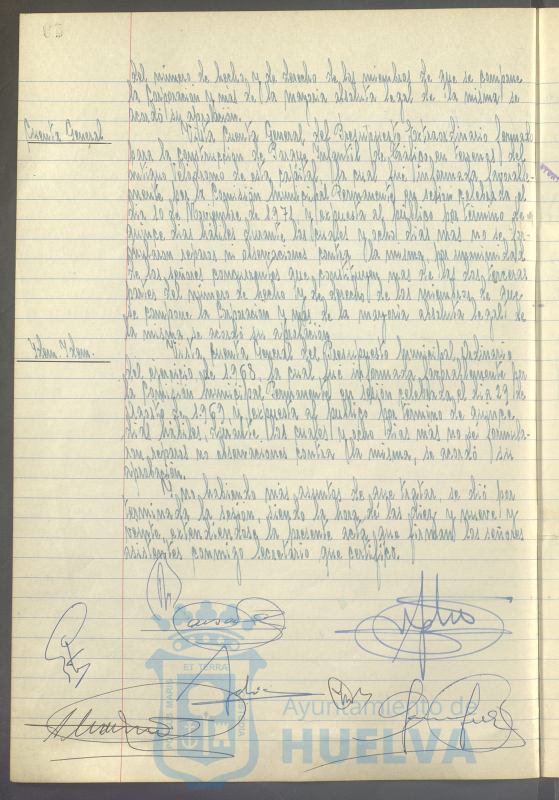 del número de hecho y de derecho de los miembros de que se compone
la Corporación y más de la mayoría absoluta legal de la misma se
acordó su aprobación.
Cuenta General
Vista cuenta General del Presupuesto Extraordinario formado
para la construcción de Parque Infantil de Tráfico, en terrenos del
antiguo Velódromo de esta capital, la cual fué informada favorable-
mente por la Comisión Municipal Permanente en sesión celebrada el
día 10 de Noviembre de 1971 y expuesta al público por término de
quince días hábiles durante los cuales y ocho días más no se for-
mularon reparos ni observaciones contra la misma, por unanimidad
de los señores concurrentes que constituyen más de las dos terceras
partes del número de hecho y de derecho de los miembros de que
se compone la Corporación y más de la mayoría absoluta legal de
la misma, se acordó su aprobación.
Idem. Idem.
Vista cuenta General del Presupuesto Municipal Ordinario
del ejercicio de 1968, la cual fué informada favorablemente por
la Comisión Municipal Permanente en sesión celebrada el día 29 de
Agosto de 1969 y expuesta al público por término de quince
días hábiles, durante los cuales y ocho días más no se formula-
ron reparos ni observaciones contra la misma, se acordó su
aprobación.
Y no habiendo más asuntos de que tratar, se dió por
terminada la sesión, siendo la hora de las diez y nueve y
veinte, extendiéndose la presente acta que firman los señores
asistentes conmigo Secretario que certifico.
ET TERRA
Ayuntamiento de
HUELVA